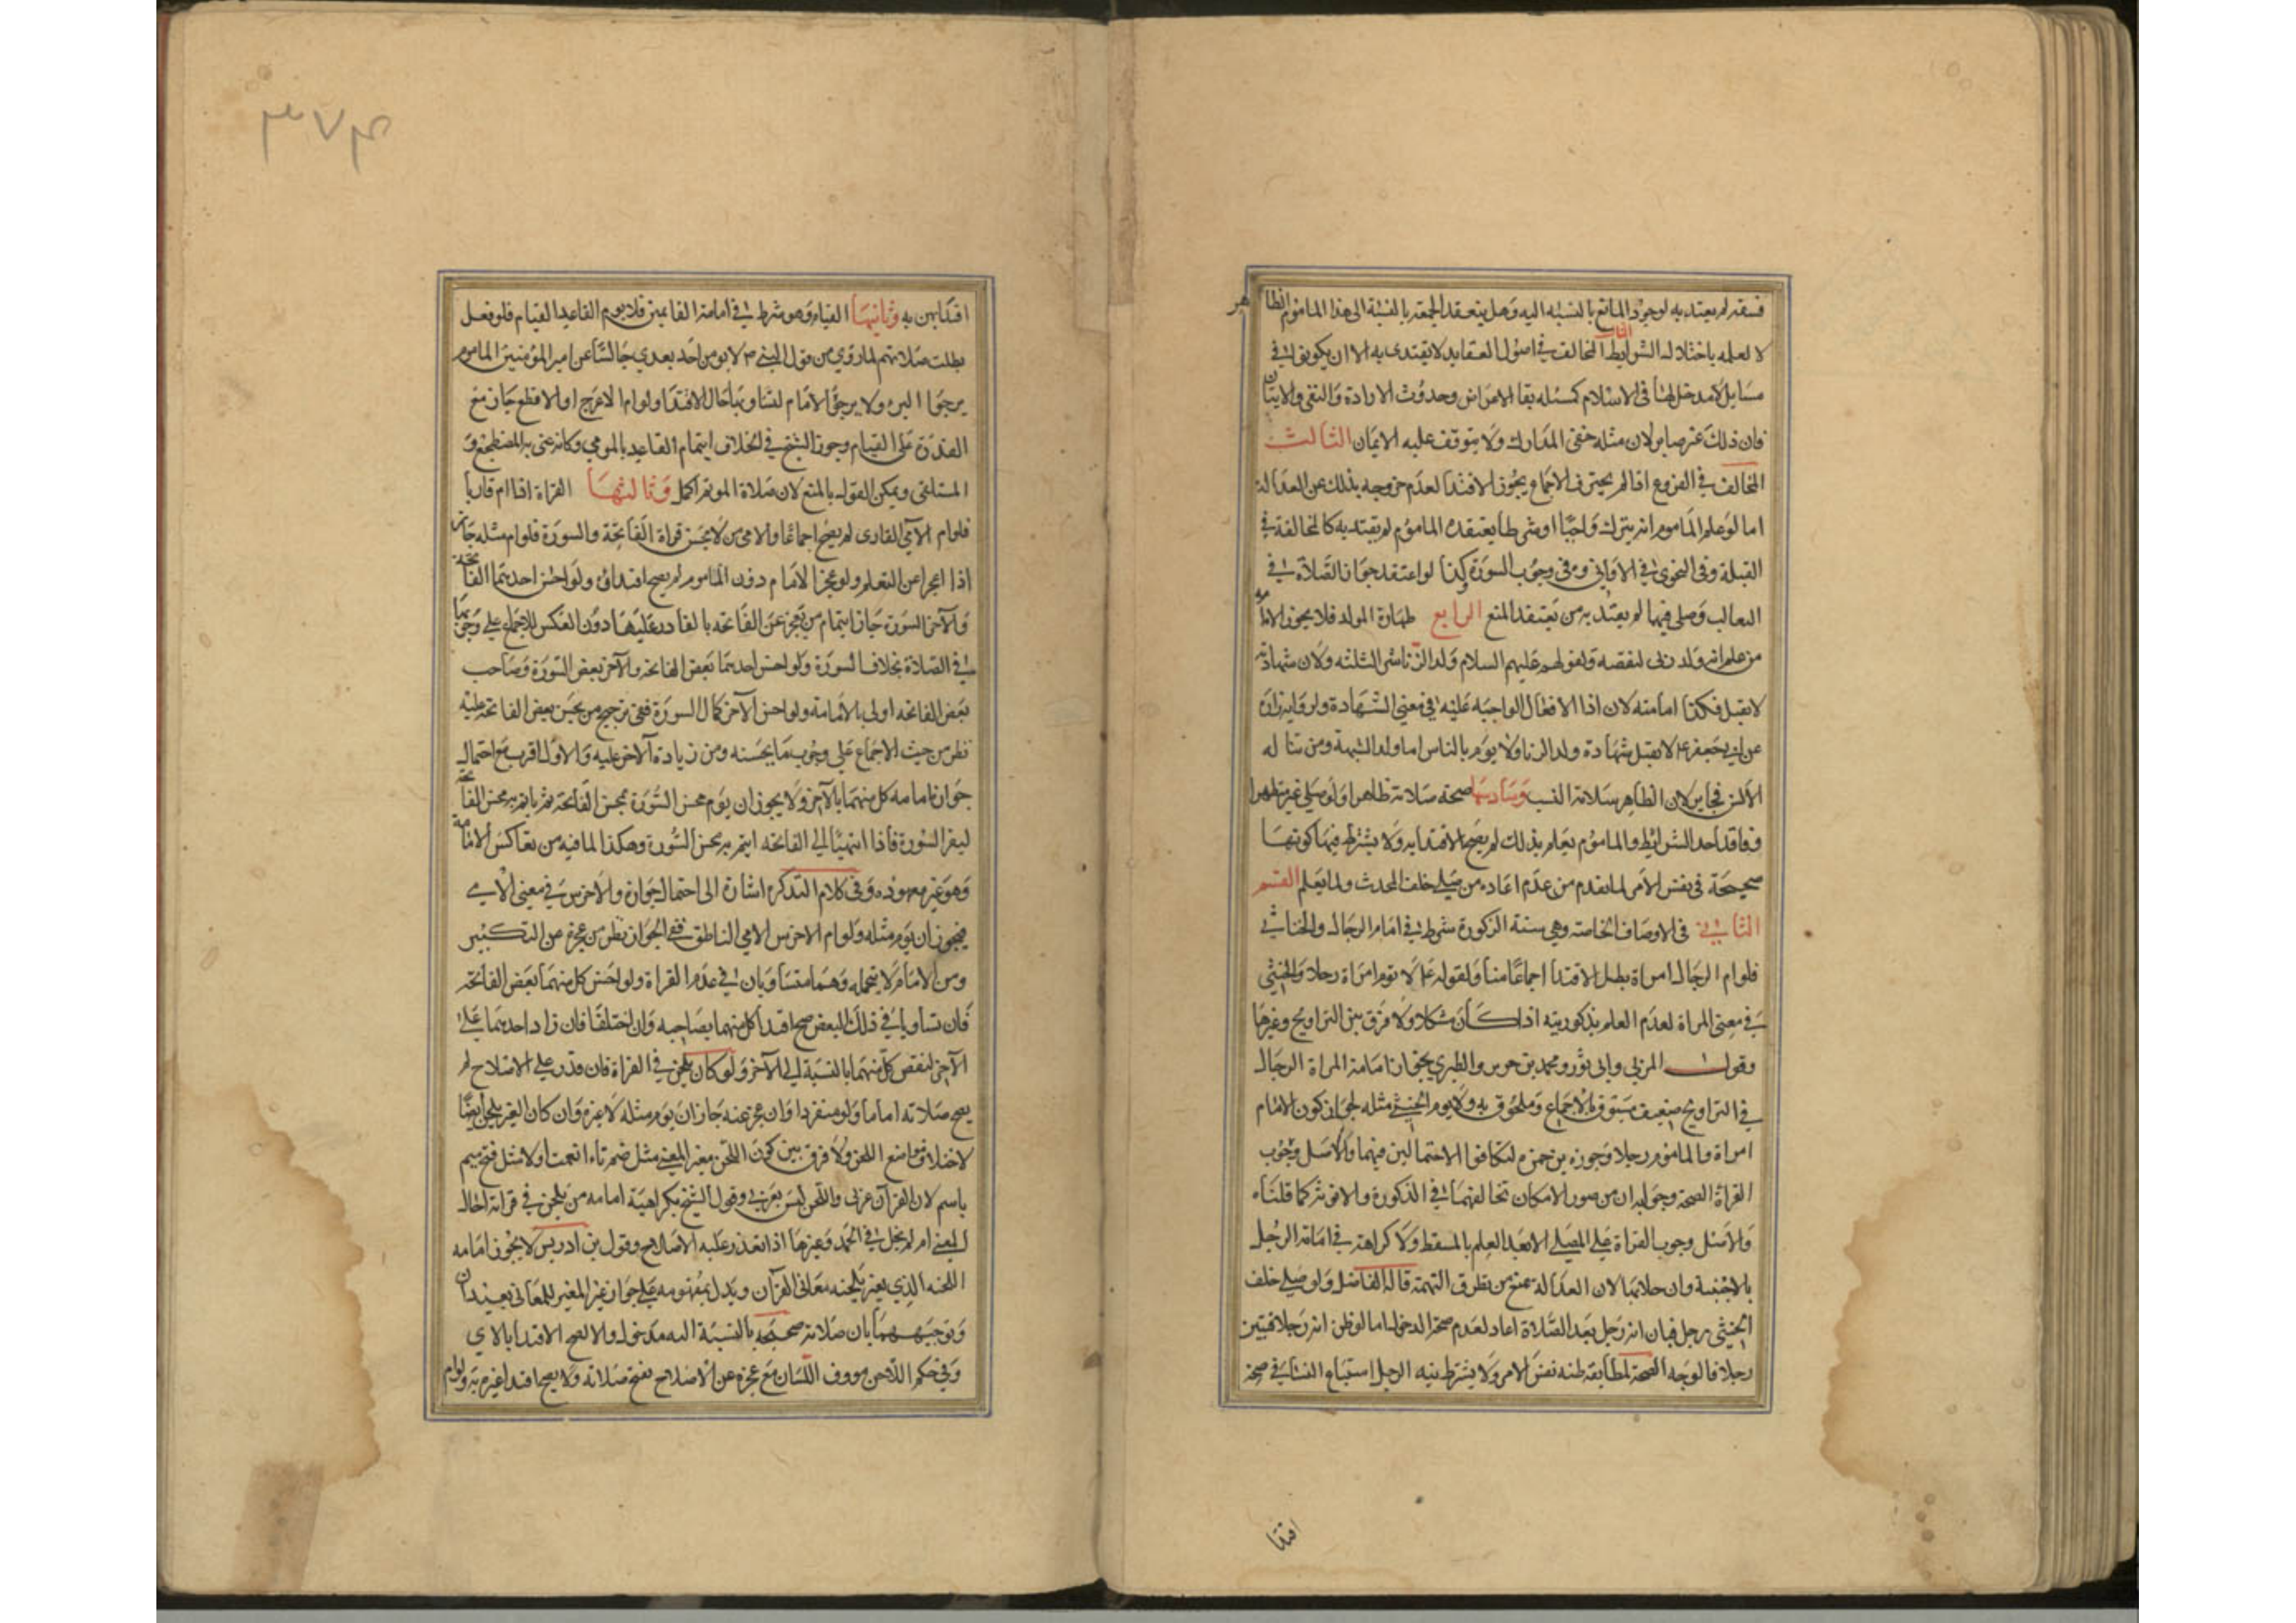 فسقه لم يعتد به لوجود المانع بالنسبه اليه وهل ينعقد الجمعة بالنسبة الى هذا الماموم الظاهر
لا لعلمه باختلال الشرايط الثانى المخالف فى اصول العقايد لا يقتدى به الا ان يكون فى
مسايل لا مدخل لها فى الاسلام كمسئله بقا الاعراض وحدوث الارادة والنفى والاثبات
فان ذلك غير ضاير لان مثله خفى المدارك ولا يتوقف عليه الايمان الثالث
المخالف فى الفروع اذا لم يخرق الاجماع يجوز الاقتدا لعدم خروجه بذلك عن العدالة
اما لو علم الماموم انه يترك واجبًا او شرطا يعتقده الماموم لم يقتد به كالمخالفة فى
القبلة وفى التحرى فى الاوانى وفى وجوب السورة وكذا لو اعتقد جواز الصلاة فى
الثعالب وصلى فيها لم يقتد به من يعتقد المنع الرابع طهارة المولد فلا يجوز الامامه
من علم انه ولد زنى لنقصه ولقولهم عليهم السلام ولد الزنا شر الثلثه ولان شهادته
لا تقبل فكذا امامته لان اذا الافعال الواجبه عليه فى معنى الشهادة ولرواية زرارة
عن ابى جعفر ع لا تقبل شهادة ولد الزنا ولا يوم بالناس اما ولد الشبهة ومن تناله
الالسن فجايز لان الظاهر سلامة النسب وسادسها صحة صلاته ظاهرا ولو صلى غير متطهر
وفاقد احد الشرايط والماموم يعلم بذلك لم يصح الاقتدا به ولا يشترط فيها كونها
صحيحة فى نفس الامر لما تقدم من عدم اعاده من صلى خلف المحدث ولما يعلم القسم
الثانى فى الاوصاف الخاصة وهى ستة الذكورة شرط فى امام الرجال والخناثى
فلو ام الرجال امراة بطل الاقتدا اجماعًا منا ولقوله ع لا توم امراة رجلا والخنثى
فى معنى المراة لعدم العلم بذكوريته اذا كان مشكلا ولا فرق بين التراويح وغيرها
وقول المزنى وابى ثور ومحمد بن جرير والطبرى بجواز امامة المراة الرجال
فى التراويح ضعيف مسبوق بالاجماع وملحوق به ولا يوم الخنثى مثله لجواز كون الامام
امراة والماموم رجلا وجوزه بن حمزه لتكافوا الاحتمالين فيهما والاصل وجوب
القراة الصحة وجوابه ان من صور الامكان تخالفهما فى الذكورة والانوثة كما قلناه
والاصل وجوب القراة على المصلى الا بعد العلم بالمسقط ولا كراهة فى امامة الرجل
بالاجنبية وان خلا بها لان العدالة تمنع من تطرق التهمة قاله الفاضل ولو صلى خلف
الخنثى رجل فبان انه رجل بعد الصلاة اعاد لعدم صحة الدخول اما لو ظن انه رجلا فتبين
رجلا فالوجه الصحة لمطابقة ظنه نفس الامر ولا يشترط نيه الرجل استتباع النسا فى صحة
اقتدا
٣٧٤
اقتدائهن به وثانيها القيام وهو شرط فى امامة القايمين فلا يوم القاعد القيام فلو فعل
بطلت صلاتهم لما روى من قول النبى ص لا يومن احد بعدى جالسًا عن امير المؤمنين الماموم
يرجوا البرء ولا يرجو الامام لتساويهما حال الاقتدا ولو ام الاعرج او الاقطع جاز مع
القدرة على القيام وجوز الشيخ فى الخلاف ايتمام القاعد بالمومى وكانه عنى به المضطجع و
المستلقى ويمكن القول بالمنع لان صلاة الموتم اكمل وثالثها القراة اذا ام قاريا
فلو ام الامى القارى لم يصح اجماعًا والامى من لا يحسن قراة الفاتحة والسورة فلو ام مثله جاز
اذا عجزا عن التعلم ولو عجز الامام دون الماموم لم يصح اقتداؤه ولو احسن احدهما الفاتحه
والاخر السورة جاز ايتمام من يعجز عن الفاتحه بالقادر عليها دون العكس للاجماع على وجوبها
فى الصلاة بخلاف السورة ولو احسن احدهما بعض الفاتحه والاخر بعض السورة وصاحب
بعض الفاتحه اولى بالامامة ولو احسن الاخر كمال السورة ففى ترجيح من يحسن بعض الفاتحة عليه
نظر من حيث الاجماع على وجوب ما يحسنه ومن زيادة الاخر عليه والاول اقرب مع احتمال
جواز امامه كل منهما بالاخر ولا يجوز ان يوم محسن السورة محسن الفاتحه ثم ياتم به محسن الفاتحة
ليقرا السورة فاذا انتهيا الى الفاتحه ايتم به محسن السورة وهكذا لما فيه من تعاكس الامامه
وهو غير معهود وفى كلام التذكره اشارة الى احتمال جوازه والاخرس فى معنى الامى
فيجوز ان يوم مثله ولو ام الاخرس الامى الناطق ففى الجواز نظر من عجزه عن التكبير
ومن الامام لا يتحمله وهما متساويان فى عدم القراة ولو احسن كل منهما بعض الفاتحة
فان تساويا فى ذلك البعض صح اقتدا كل منهما بصاحبه وان اختلفا فان زاد احدهما على
الاخر لنقص كل منهما بالنسبة الى الاخر ولو كان يلحن فى القراة فان قدر على الاصلاح لم
يصح صلاته اماما ولو منفردا وان عجز عنه جاز ان يوم مثله لا غيره وان كان الغير يلحن ايضًا
لاختلاف مواضع اللحن ولا فرق بين كون اللحن مغير المعنى مثل ضم تاء انعمت او لا مثل فتح ميم
باسم لان القران عربى واللحن ليس بعربى وقول الشيخ بكراهية امامه من يلحن فى قراته احال
المعنى ام لم يحل فى الحمد وغيرها اذا تعذر عليه الاصلاح وقول بن ادريس لا يجوز امامه
اللحنه الذى يغير بلحنه معانى القران ويدل بمفهومه على جواز غير المغير للمعانى بعيدان
وتوجيههما بان صلاته صحيحه بالنسبة اليه مدخول والا لصح الاقتدا بالامى
وفى حكم اللاحن مووف اللسان مع عجزه عن الاصلاح فتصح صلاته ولا يصح اقتدا غيره به ولو ام